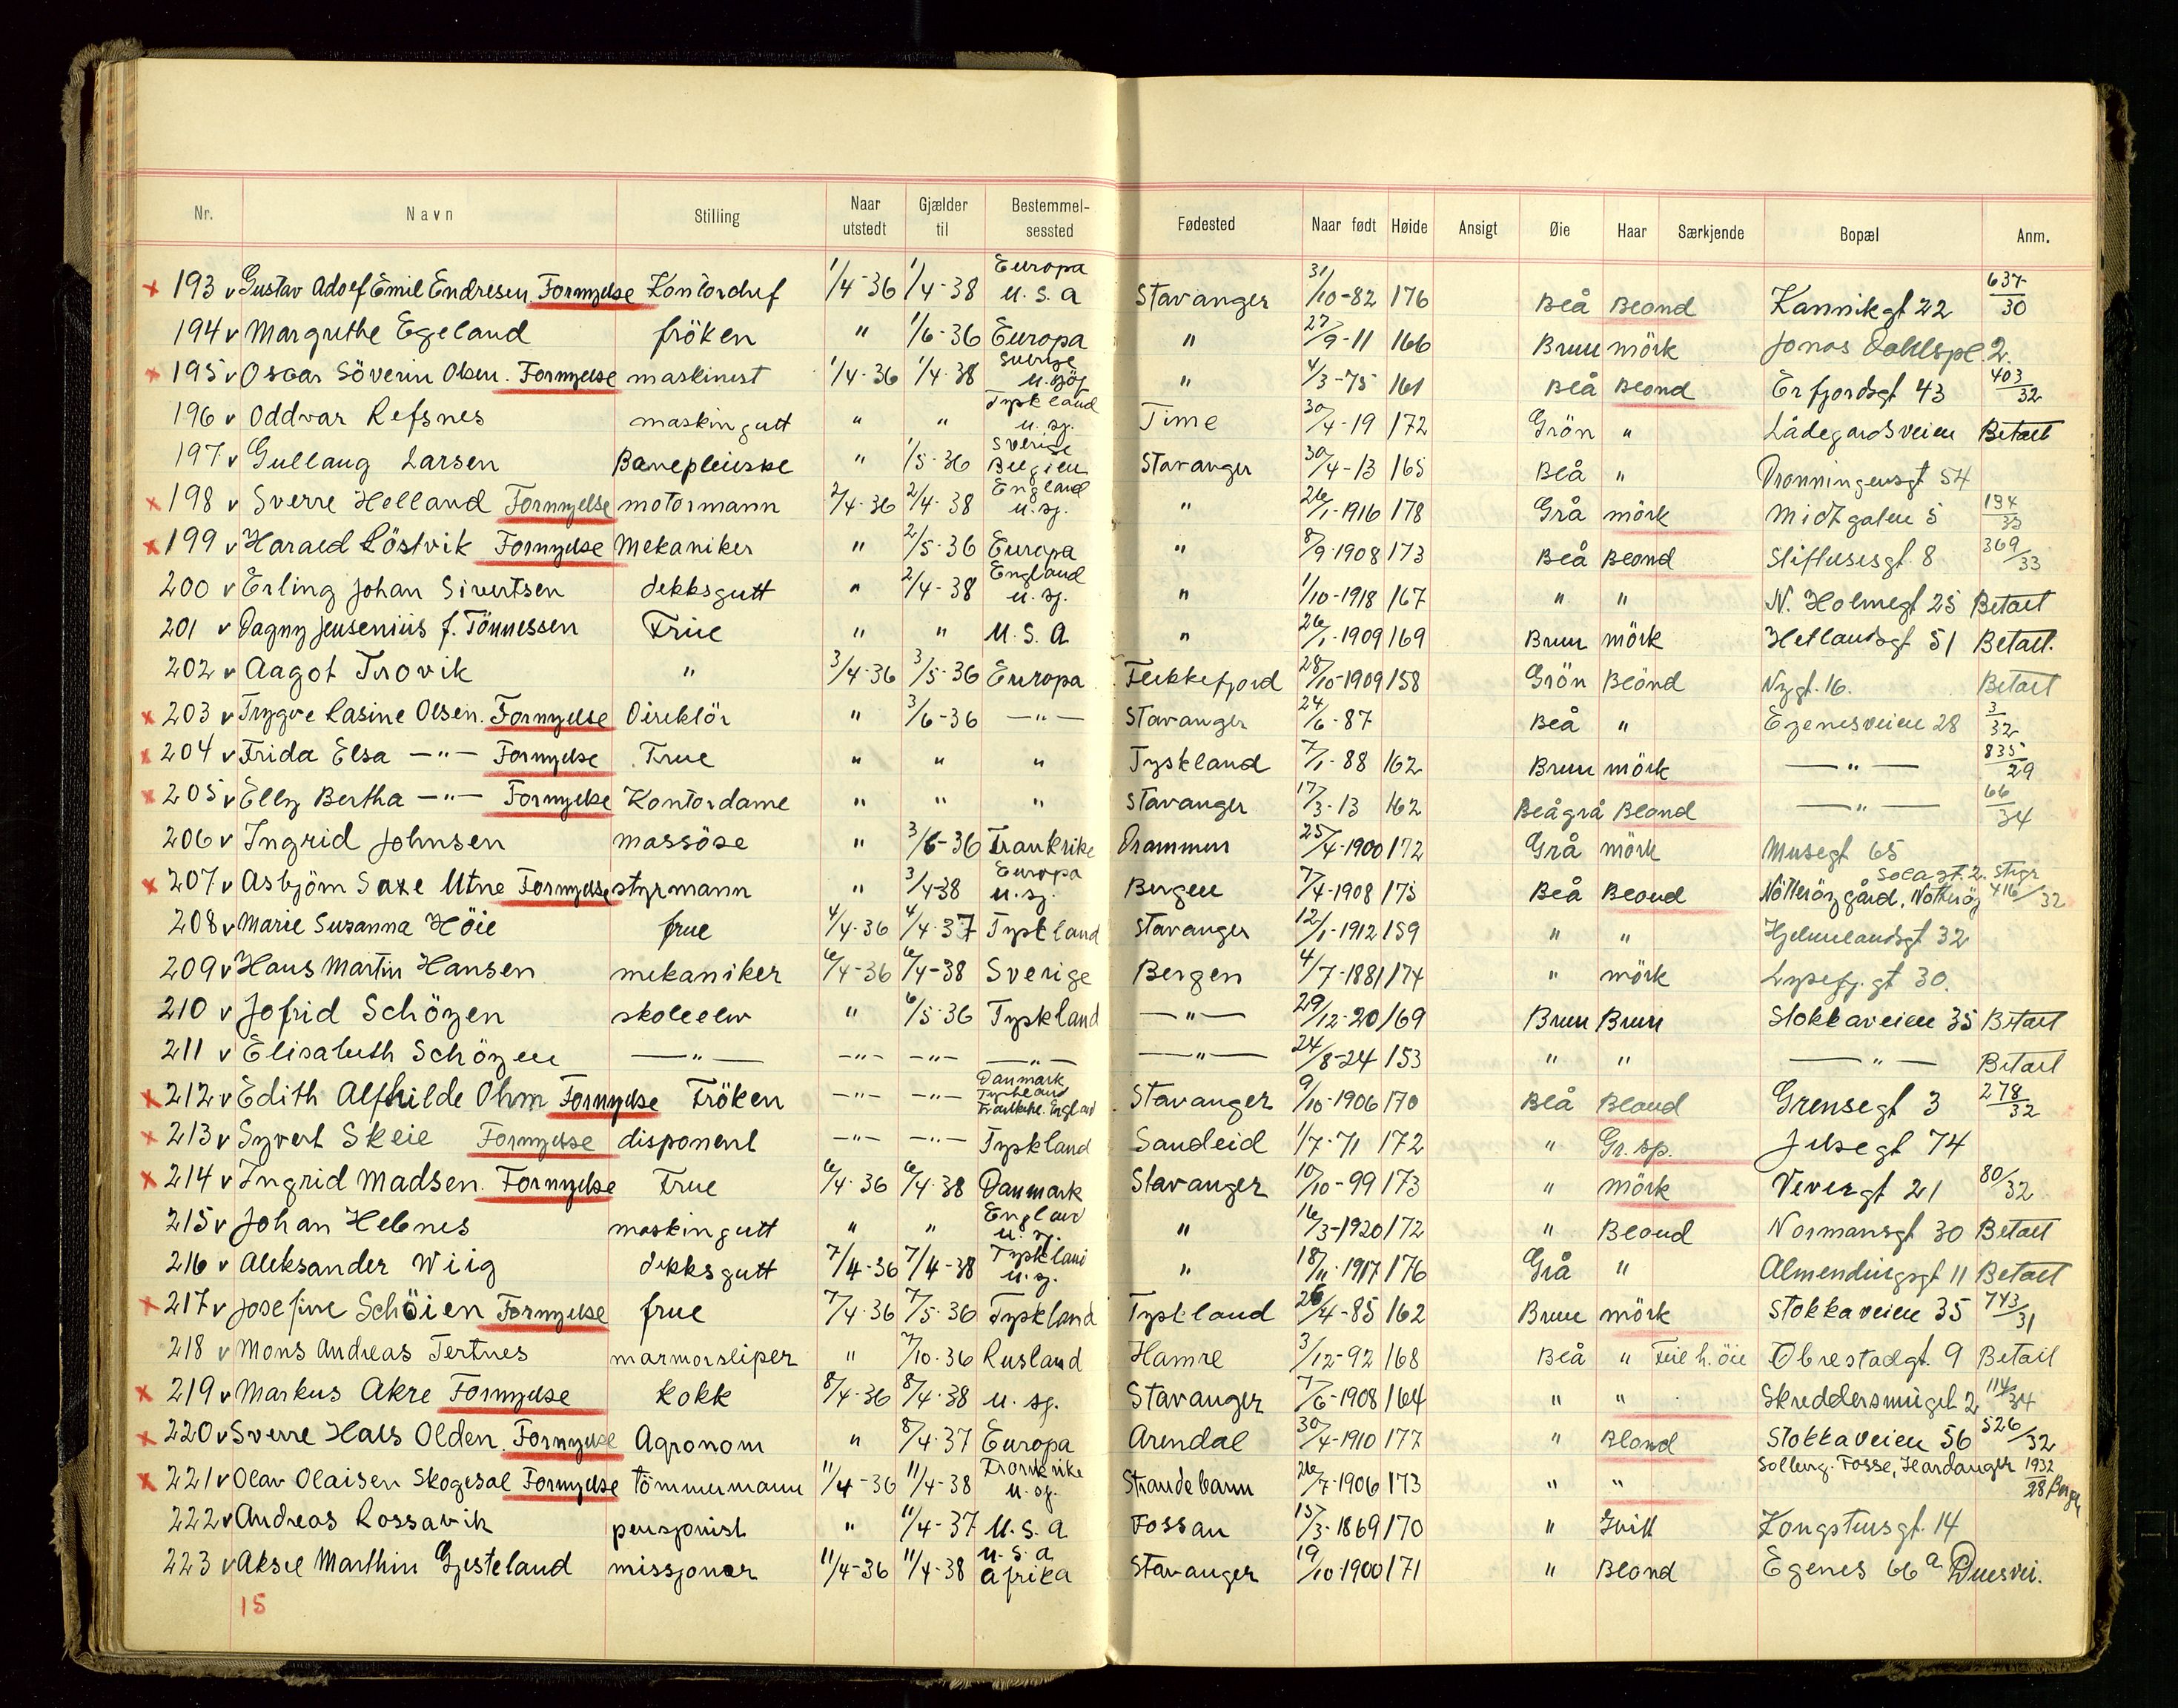 Nr. Navn Stilling Naar utstedt Gjælder til Bestemmelsessted Fødested Naar født Høide Ansigt Øie Haar Særkjende Bopæl Anm.
193 v Gustav Adolf Emil Endresen Fornyelse Kontorchef 1/4-36 1/4-38 Europa U.S.A Stavanger 31/10-82 176 Blå Blond Kannikgt 22 637/30
194 v Margrethe Egeland fröken " 1/6-36 Europa " 27/9-11 166 Brun mörk Jonas Dahlspl. 2.
195 v Oscar Söverin Olsen. Fornyelse maskinist 1/4-36 1/4-38 Sverige u. sjöf " 4/3-75 161 Blå Blond Erfjordsgt 43 403/32
196 v Oddvar Refsnes maskingutt " " Tyskland u. sj. Time 30/4-19 172 Grön " Lådegårdsveien Betalt
197 v Gullaug Larsen Barnepleierske " 1/5-36 Sverige Belgien Stavanger 30/4-13 165 Blå " Dronningensgt 54
198 v Sverre Helland Fornyelse motormann 2/4-36 2/4-38 England u. sj. " 26/1-1916 178 Grå mörk Midtgaten 5 134/33
199 v Harald Löstvik Fornyelse Mekaniker " 2/5-36 Europa " 8/9-1908 173 Blå Blond Stiftusesgt. 8 369/33
200 v Erling Johan Sivertsen dekksgutt " 2/4-38 England u. sj. " 1/10-1918 167 " " N. Holmegt 25 Betalt
201 v Dagny Jensenius f. Tönnessen Frue " " U.S.A " 26/1-1909 169 Brun mörk Hetlandsgt 51 Betalt.
202 v Aagot Trovik " 3/4-36 3/5-36 Europa Flekkefjord 28/10-1909 158 Grön Blond Nygt. 16. Betalt
203 v Trygve Rasine Olsen. Fornyelse Direktör " 3/6-36 —"— Stavanger 24/6-87 Blå " Egenesveien 28 3/32
204 v Frida Elsa —"— Fornyelse Frue " " " Tyskland 7/1-88 162 Brun mörk —"— 835/29
205 v Elly Bertha —"— Fornyelse Kontordame " " " Stavanger 17/3-13 162 Blågrå Blond —"— 66/34
206 v Ingrid Johnsen massöse " 3/6-36 Frankrike Drammen 25/4-1900 172 Grå mörk Musegt 65
207 v Asbjörn Saxe Utne Fornyelse styrmann " 3/4-38 Europa u. sj. Bergen 7/4-1908 175 Blå Blond Solagt. 2. Stvgr Nötteröy gård, Nötteröy 416/32
208 v Marie Susanna Höie frue 4/4-36 4/4-37 Tyskland Stavanger 12/1-1912 159 " " Hjelmelandsgt 32
209 v Hans Martin Hansen mekaniker 6/4-36 6/4-38 Sverige Bergen 4/7-1881 174 " mörk Lysefj. gt 30.
210 v Jofrid Schöyen skoleelev " 6/5-36 Tyskland —"— 29/12-20 169 Brun Brun Stokkaveien 35 Betalt
211 v Elisabeth Schöyen —"— —"— —"— —"— —"— 24/8-24 153 " " —"— Betalt
212 v Edith Alfhilde Ohm Fornyelse Fröken —"— —"— Danmark Tyskland Frankrike. England Stavanger 9/10-1906 170 Blå Blond Grensegt 3 278/32
213 v Syvert Skeie Fornyelse disponent —"— —"— Tyskland Sandeid 1/7-71 172 " Gr. sp. Jelsegt 74
214 v Ingrid Madsen. Fornyelse Frue 6/4-36 6/4-38 Danmark Stavanger 10/10-99 173 " mörk Vevergt 21 80/32
215 v Johan Hebnes maskingutt " " England u. sj. " 16/3-1920 172 " Blond Normansgt 30 Betalt
216 v Aleksander Wiig dekksgutt 7/4-36 7/4-38 Tyskland u. sj. " 18/11-1917 176 Grå " Almendingsgt 11 Betalt
217 v Josefine Schöien Fornyelse frue 7/4-36 7/5-36 Tyskland Tyskland 26/4-85 162 Brun mörk Stokkaveien 35 743/31
218 v Mons Andreas Tertnes marmorsliper " 7/10-36 Rusland Hamre 3/12-92 168 Blå " Feil h. öie Obrestadgt. 9 Betalt
219 v Markus Akre Fornyelse kokk 8/4-36 8/4-38 u. sj. Stavanger 7/6-1908 164 " " Skreddersmuget 2 114/34
220 v Sverre Hals Olden. Fornyelse Agronom " 8/4-37 Europa Arendal 30/4-1910 177 " Blond Stokkaveien 56 526/32
221 v Olav Olaisen Skogesal Fornyelse tömmermann 11/4-36 11/4-38 Frankrike u. sj. Strandebarm 26/7-1906 173 " " Solberg. Fosse, Hardanger 1932/28 Bergen
222 v Andreas Rossavik pensjonist " 11/4-37 U.S.A Fossan 15/3-1869 170 " Hvitt Kongstensgt. 14
223 v Aksel Marthin Gjesteland missjonær 11/4-36 11/4-38 U.S.A Afrika Stavanger 19/10-1900 171 " Blond Egenes 66 a Duesvei.
15